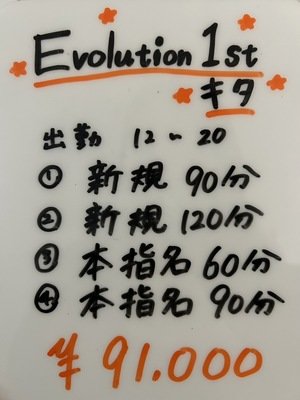 Evolution 1st
キタ
出勤 12〜20
① 新規 90分
② 新規 120分
③ 本指名 60分
④ 本指名 90分
¥91.000